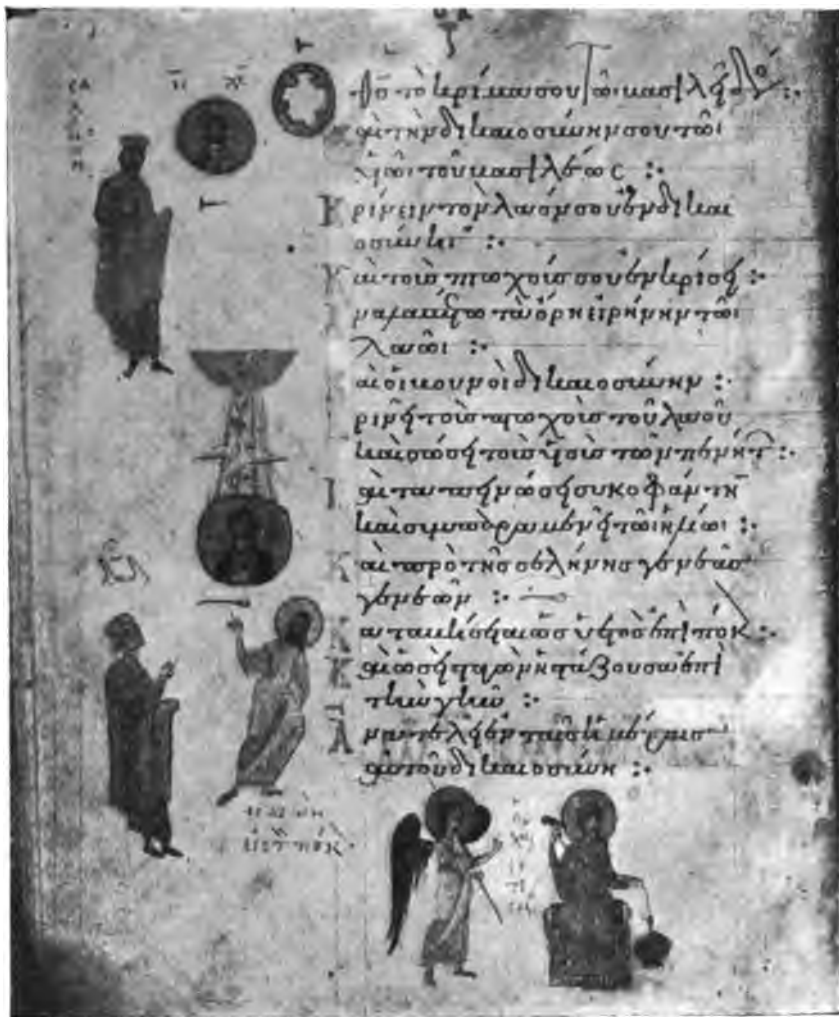 Θς τὸ κρίμα σου τῶι βασιλεῖ δός :·
καὶ τὴν δικαιοσύνην σου τῶι
υἱῶι τοῦ βασιλέως :·
Κρίνειν τὸν λαόν σου ἐν δικαι
οσύνηι :·
Καὶ τοὺς πτωχούς σου ἐν κρίσει :·
ὄρη εἰρήνην τῶι
λαῶι :·
Καὶ οἱ βουνοὶ δικαιοσύνην :·
ρινεῖ τοὺς πτωχοὺς τοῦ λαοῦ
καὶ σώσει τοὺς υἱοὺς τῶν πενήτ :·
αὶ ταπεινώσει συκοφάντη
καὶ συμπαραμενεῖ τῶι ἡλίωι :·
Καὶ πρὸ τῆς σελήνης γενεὰς
γενεῶν :·
Καταβήσεται ὡς ὑετὸς ἐπὶ πόκ :·
Καὶ ὡσεὶ ἐπὶ
τὴν γῆν :·
Ἀνατελεῖ ἐν ταῖς ἡμέραις
αὐτοῦ δικαιοσύνη :·